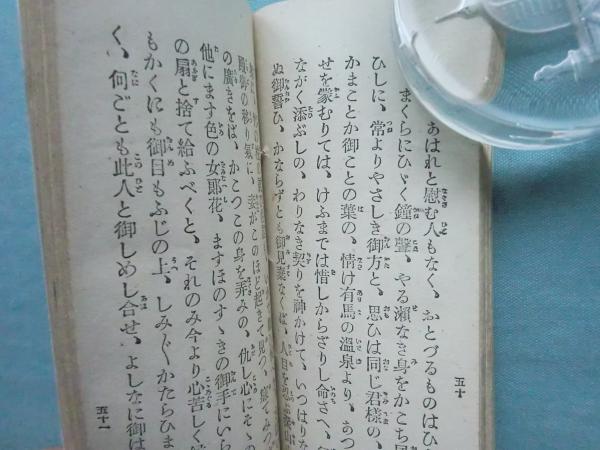 あはれと慰む人もなく、おとづるものはひ
まくらにひゞく鐘の聲、やる瀬なき身をかこち
ひしに、常よりやさしき御方と、思ひは同じ君樣の、
かまことか御ことの葉の、情け有馬の溫泉より、あつ
せを蒙むりては、けふまでは惜しからざりし命さへ、
ながく添ぶしの、わりなき契りを神かけて、いつはりな
ぬ御誓ひ、かならずとも御見棄なくば、人目を
五十
殿御の移り氣に、妾がこのほど起きて見つ、寢てみつ
の廣きをば、かこつこの身を弄みの、仇し心にそゝの
他にます色の女郎花、ますほのすゝきの御手にいら
の扇と捨て給ふべくと、それのみ今より心苦しく
もかくにも御目もふじの上、しみ〴〵かたらひま
く、何ごとも此人と御しめし合せ、よしなに御は
五十一